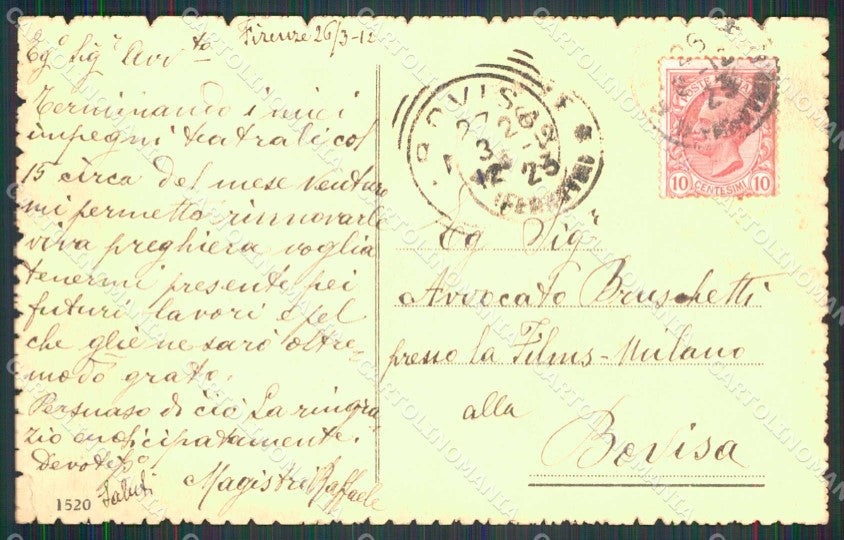 Firenze 26/3-12
Eg.º Sig.r Avv.to
Terminando i miei
impegni teatrali col
15 circa del mese venturo
mi permetto rinnovarle
viva preghiera voglia
tenermi presente pei
futuri lavori e pel
che gliene sarò oltre-
modo grato.
Persuaso di ciò La ringra-
zio anticipatamente.
Devotiss.º
Saluti
Magistri Raffaele
1520
BOVISA
27
3
12
(FERROVIA)
POSTE ITALIANE
10 CENTESIMI 10
Eg Sigr
Avvocato Bruschetti
presso la Films-Milano
alla
Bovisa
CARTOLINOMANIA